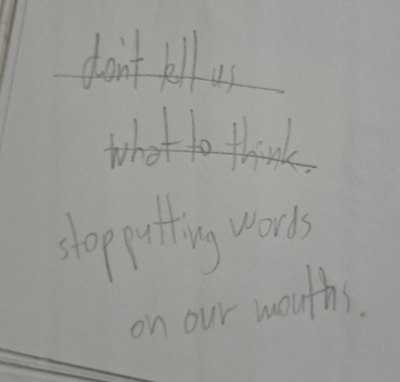 don't tell us
what to think.
stop putting words
on our mouths.